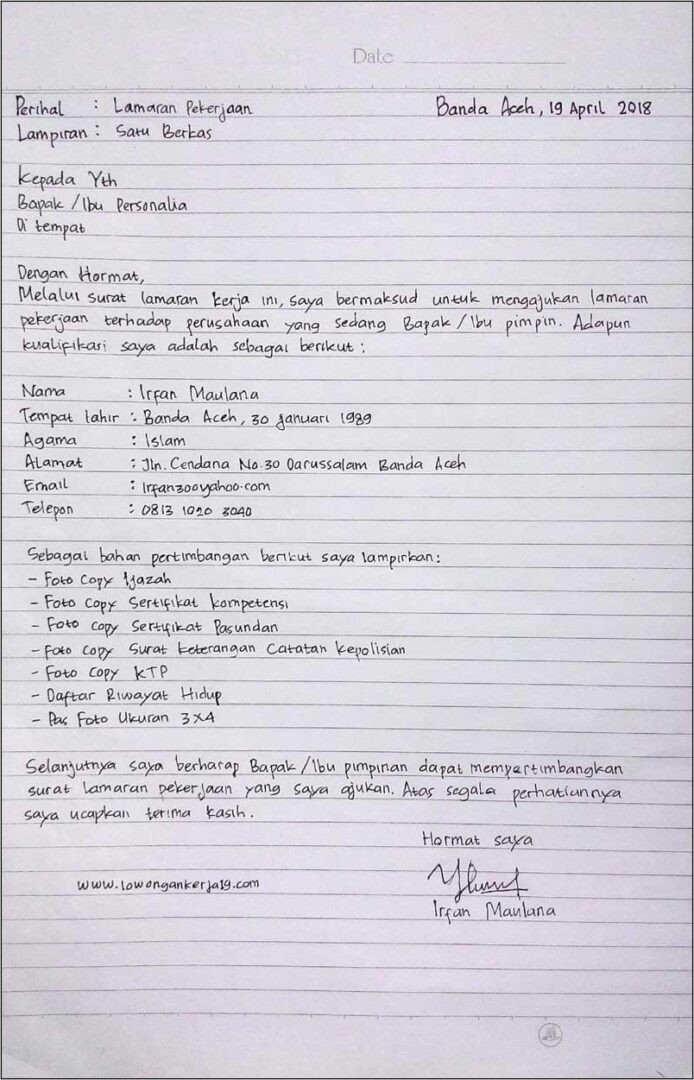 Date
Perihal : Lamaran Pekerjaan Banda Aceh, 19 April 2018
Lampiran : Satu Berkas
Kepada Yth
Bapak /Ibu Personalia
Di tempat
Dengan Hormat,
Melalui surat lamaran kerja ini, saya bermaksud untuk mengajukan lamaran
pekerjaan terhadap perusahaan yang sedang Bapak/Ibu pimpin. Adapun
kualifikasi saya adalah sebagai berikut :
Nama : Irfan Maulana
Tempat lahir : Banda Aceh, 30 Januari 1989
Agama : Islam
Alamat : Jln. Cendana No.30 Darussalam Banda Aceh
Email : Irfan300yahoo.com
Telepon : 0813 1020 3040
Sebagai bahan pertimbangan berikut saya lampirkan:
- Foto Copy Ijazah
- Foto Copy Sertifikat Kompetensi
- Foto Copy Sertifikat Pasundan
- Foto Copy Surat Keterangan Catatan Kepolisian
- Foto Copy KTP
- Daftar Riwayat Hidup
- Pas Foto Ukuran 3X4
Selanjutnya saya berharap Bapak/Ibu pimpinan dapat mempertimbangkan
surat lamaran pekerjaan yang saya ajukan. Atas segala perhatiannya
saya ucapkan terima kasih.
Hormat saya
www.lowongankerja19.com
Irfan Maulana